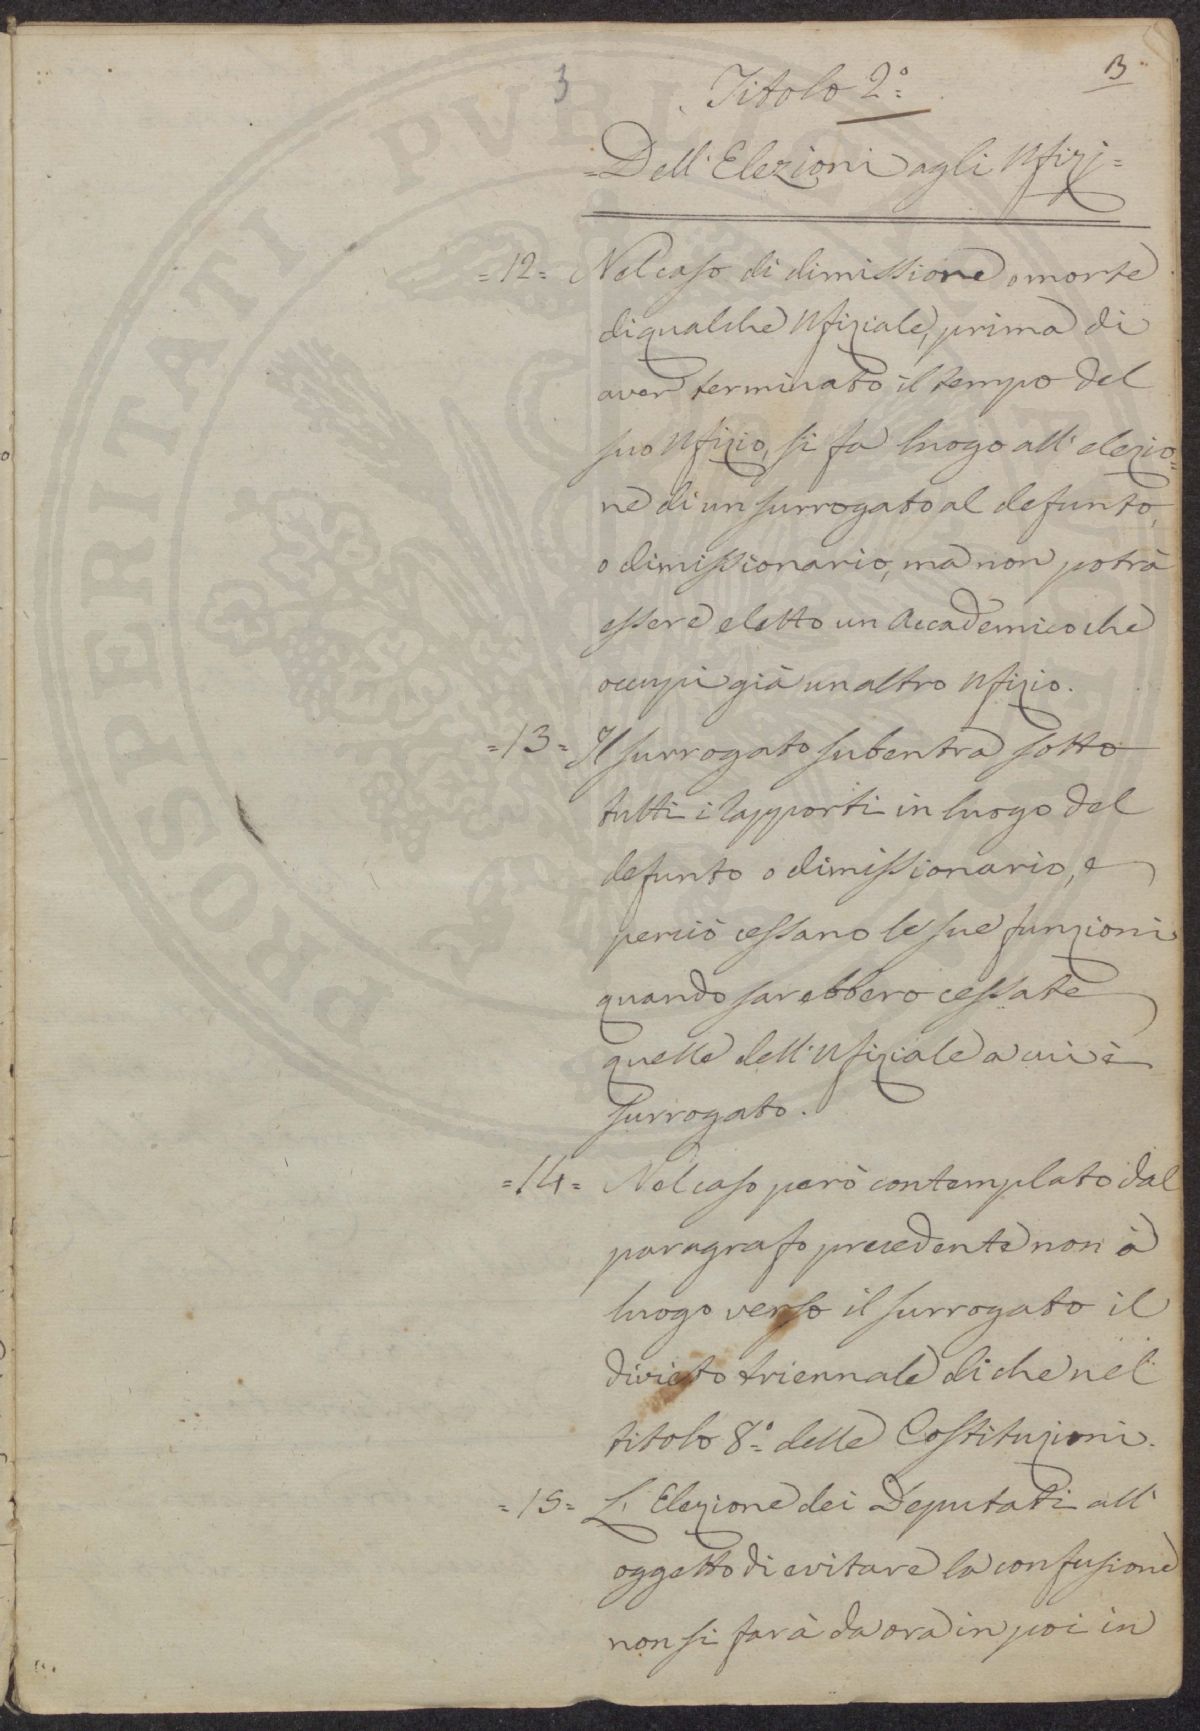 3
13
Titolo 2°=
=Dell'Elezioni agli Ufizj=
=12= Nel caso di dimissione o morte
di qualche Ufiziale, prima di
aver terminato il tempo del
suo Ufizio, si fa luogo all'elezio=
ne di un surrogato al defunto,
o dimissionario, ma non potrà
essere eletto un Accademico che
occupi già un altro Ufizio.
=13= Il surrogato subentra sotto
tutti i rapporti in luogo del
defunto o dimissionario, e
perciò cessano le sue funzioni
quando sarebbero cessate
quelle dell'Ufiziale a cui è
surrogato.
=14= Nel caso però contemplato dal
paragrafo precedente non à
luogo verso il surrogato il
divieto triennale di che nel
titolo 8°= delle Costituzioni.
=15= L'Elezione dei Deputati all'
oggetto di evitare la confusione
non si farà da ora in poi in
PROSPERITATI PVBLICAE